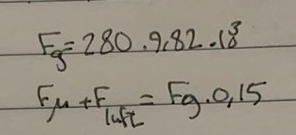 Fg = 280 · 9,82 · 10³
Fμ + Fluft = Fg · 0,15